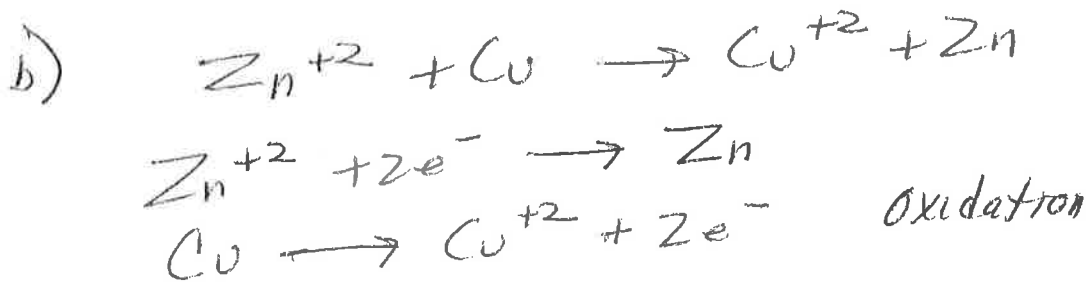 b) Zn⁺² + Cu → Cu⁺² + Zn
Zn⁺² + 2e⁻ → Zn
Cu → Cu⁺² + 2e⁻ oxidation